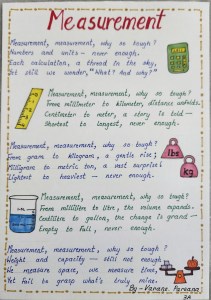 Measurement
Measurement, measurement, why so tough?
Numbers and units – never enough.
Each calculation, a thread to the sky,
Yet still we wonder, "What? And why?"
Measurement, measurement, why so tough?
From millimeter to kilometer, distance unfolds.
Centimeter to meter, a story is told –
Shortest to longest, never enough.
Measurement, measurement, why so tough?
From gram to kilogram, a gentle rise;
Milligram to metric ton, a vast surprise!
Lightest to heaviest – never enough.
lbs
kg
Measurement, measurement, why so tough?
From milliliter to liter, the volume expands.
Centiliter to gallon, the change is grand –
Empty to full, never enough.
Measurement, measurement, why so tough?
Weight and capacity – still not enough.
We measure space, we measure time,
Yet fail to grasp what's truly mine.
By -
3A